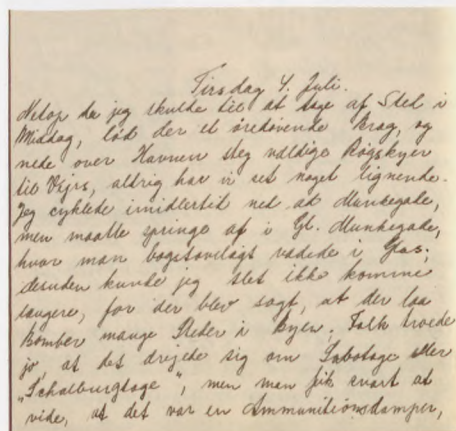 Tirsdag 4. Juli.
Netop da jeg skulde til at tage af Sted i
Middag, lød der et øredøvende Brag, og
nede over Havnen steg vældige Røgskyer
til Vejrs, aldrig har vi set noget lignende.
Jeg cyklede imidlertid ned ad Munkegade,
men maatte springe af i Gl. Munkegade,
hvor man bogstaveligt vadede i Glas;
desuden kunde jeg slet ikke komme
længere, for der blev sagt, at der laa
Bomber mange Steder i Byen. Folk troede
jo, at det drejede sig om Sabotage eller
„Schalburgtage", men man fik snart at
vide, at det var en Ammunitionsdamper,